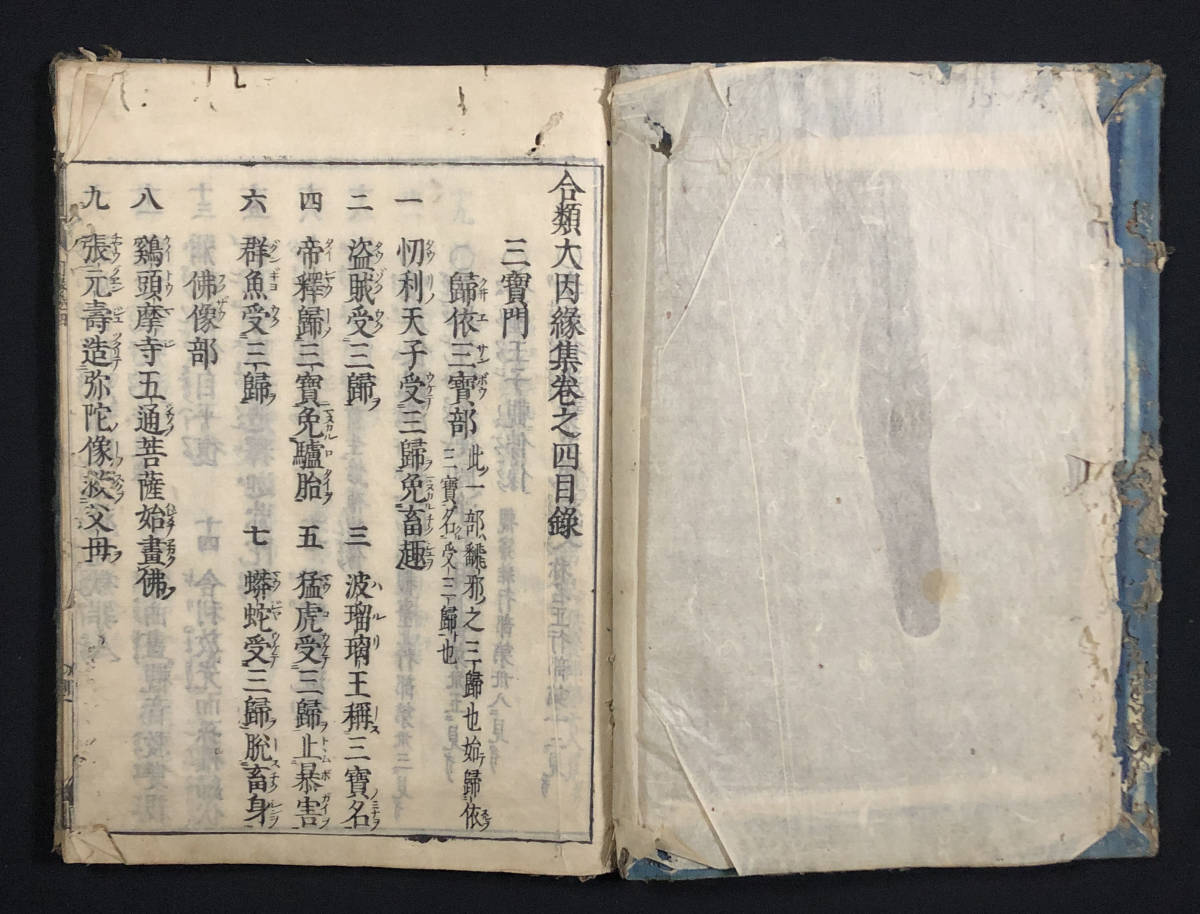 合類大因縁集卷之四目錄
三寶門
歸依三寶部
此ノ一部ハ翻邪ノ之三歸也始テ歸依
三寶名受三歸ト也
一 忉利天子受三歸免畜趣
二 盜賊受三歸 三 波瑠璃王稱三寶名
四 帝釋歸三寶免驢胎 五 猛虎受三歸止暴害
六 群魚受三歸 七 蟒蛇受三歸脫畜身
佛像部
八 鷄頭摩寺五通菩薩始畫佛
九 張元壽造弥陀像救父母